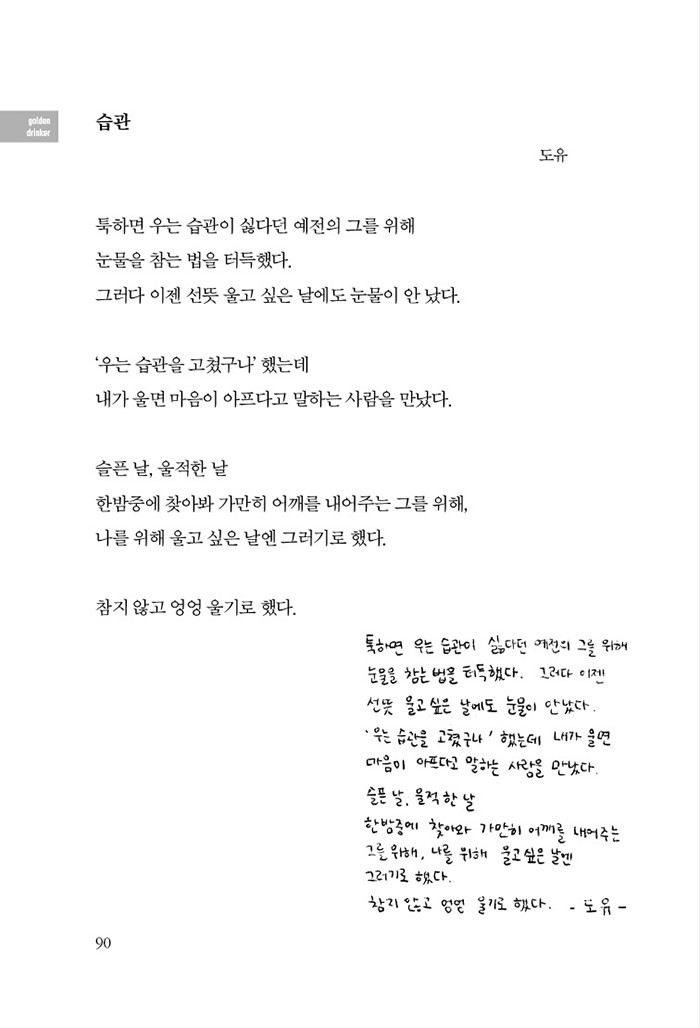 golden
drinker
습관
도유
툭하면 우는 습관이 싫다던 예전의 그를 위해
눈물을 참는 법을 터득했다.
그러다 이젠 선뜻 울고 싶은 날에도 눈물이 안 났다.
‘우는 습관을 고쳤구나’ 했는데
내가 울면 마음이 아프다고 말하는 사람을 만났다.
슬픈 날, 울적한 날
한밤중에 찾아와 가만히 어깨를 내어주는 그를 위해,
나를 위해 울고 싶은 날엔 그러기로 했다.
참지 않고 엉엉 울기로 했다.
툭하면 우는 습관이 싫다던 예전의 그를 위해
눈물을 참는 법을 터득했다. 그러다 이젠
선뜻 울고 싶은 날에도 눈물이 안 났다.
'우는 습관을 고쳤구나' 했는데 내가 울면
마음이 아프다고 말하는 사람을 만났다.
슬픈 날, 울적한 날
한밤중에 찾아와 가만히 어깨를 내어주는
그를 위해, 나를 위해 울고 싶은 날엔
그러기로 했다.
참지 않고 엉엉 울기로 했다. - 도유 -
90